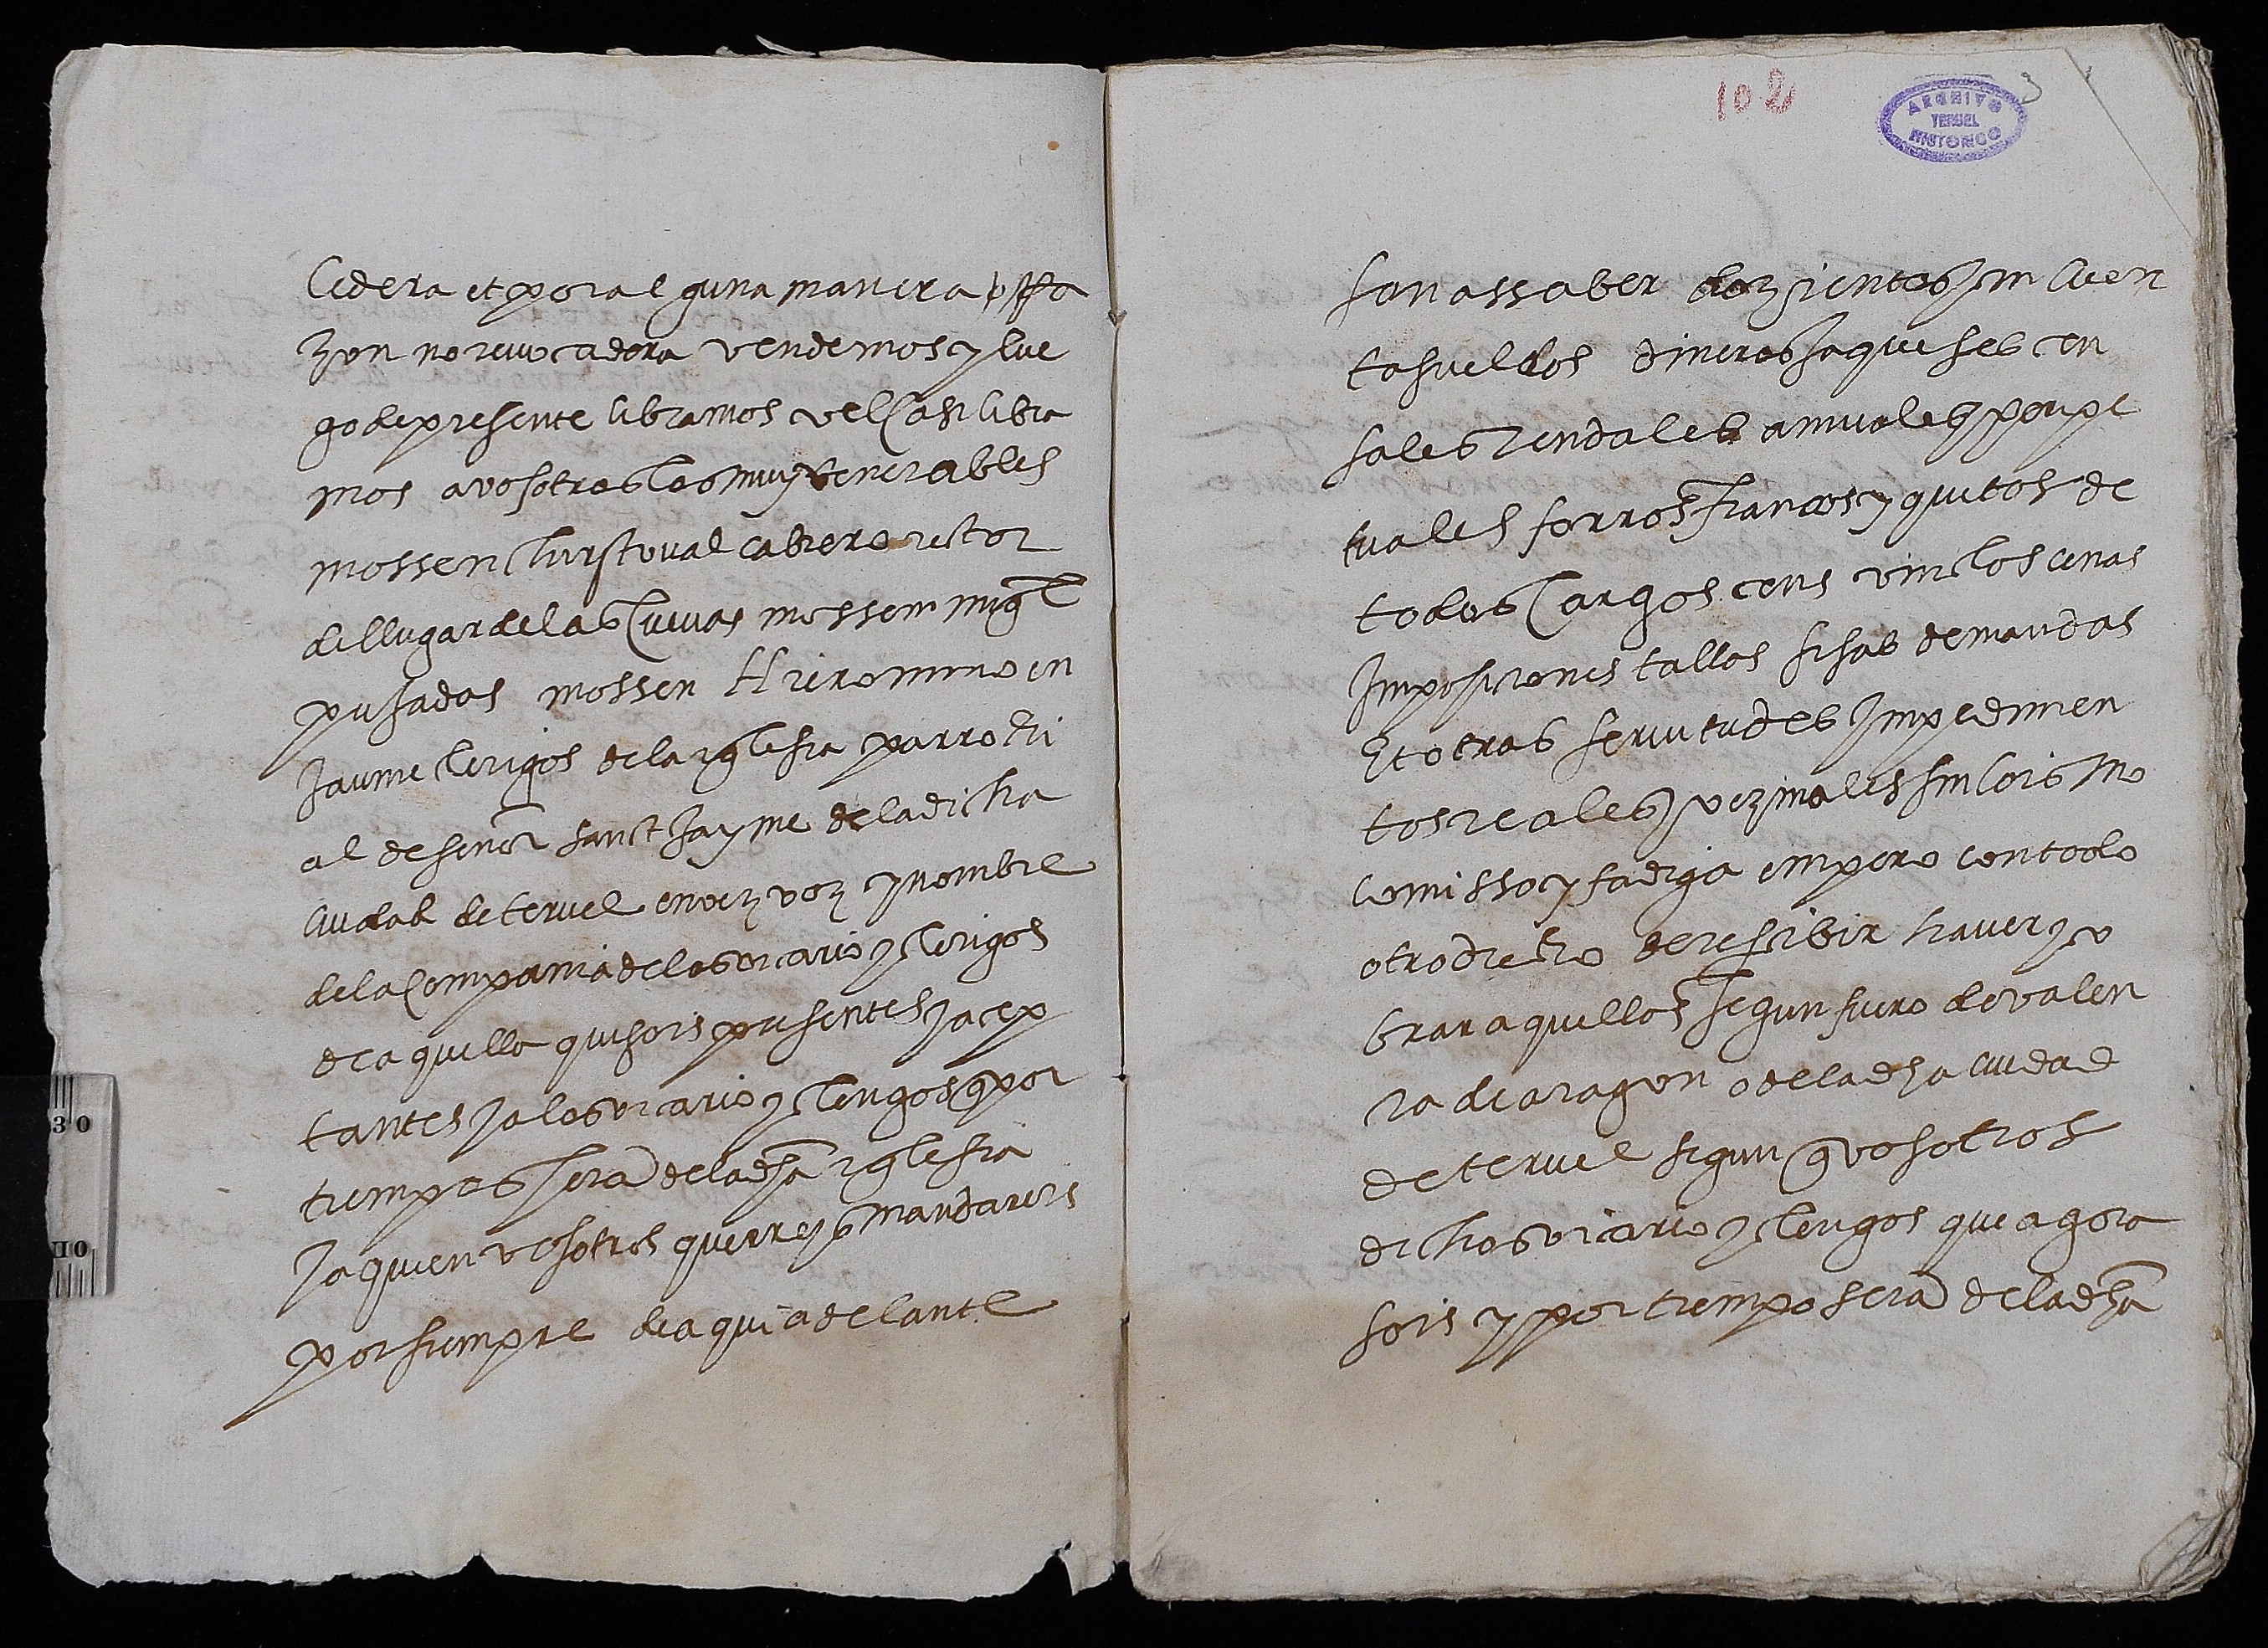 cedera et por alguna manera
zon no reuocadera vendemos y lue
go de presente libramos vel casi libra
mos a vosotros los muy venerables
mossen christoual cabrero rector
del lugar de las cueuas mossen migl
pusadas mossen Hieronimo en
Jaume clerigos de la iglesia parrochi
al de señor sanct Jayme de la dicha
ciudad de teruel en vez voz y nombre
de la compania de los vicario y clerigos
de aquella qui sois presentes y acep
tantes y a los vicario y clerigos q por
tiempos sera de la dha iglesia
y a quien vosotros querreys mandareis
por siempre de aqui adelante
102
3
ARCHIVO
TERUEL
HISTORICO
son assaber dozientos cincuen
ta sueldos dineros jaqueses cen
sales rendales annuales y perpe
tuales forros francos y quitos de
todos cargos cens vinclos cenas
Imposiciones tallas sisas demandas
Et otras seruitudes Impedimen
tos reales y vezinales sin loismo
comisso y fadiga empero con todo
otro drecho de rescibir hauer y co
brar aquellos segun fuero de valen
cia de aragon o de la dha ciudad
de teruel segun q vosotros
dichos vicario y clerigos que agora
sois y por tiempo sera de la dha